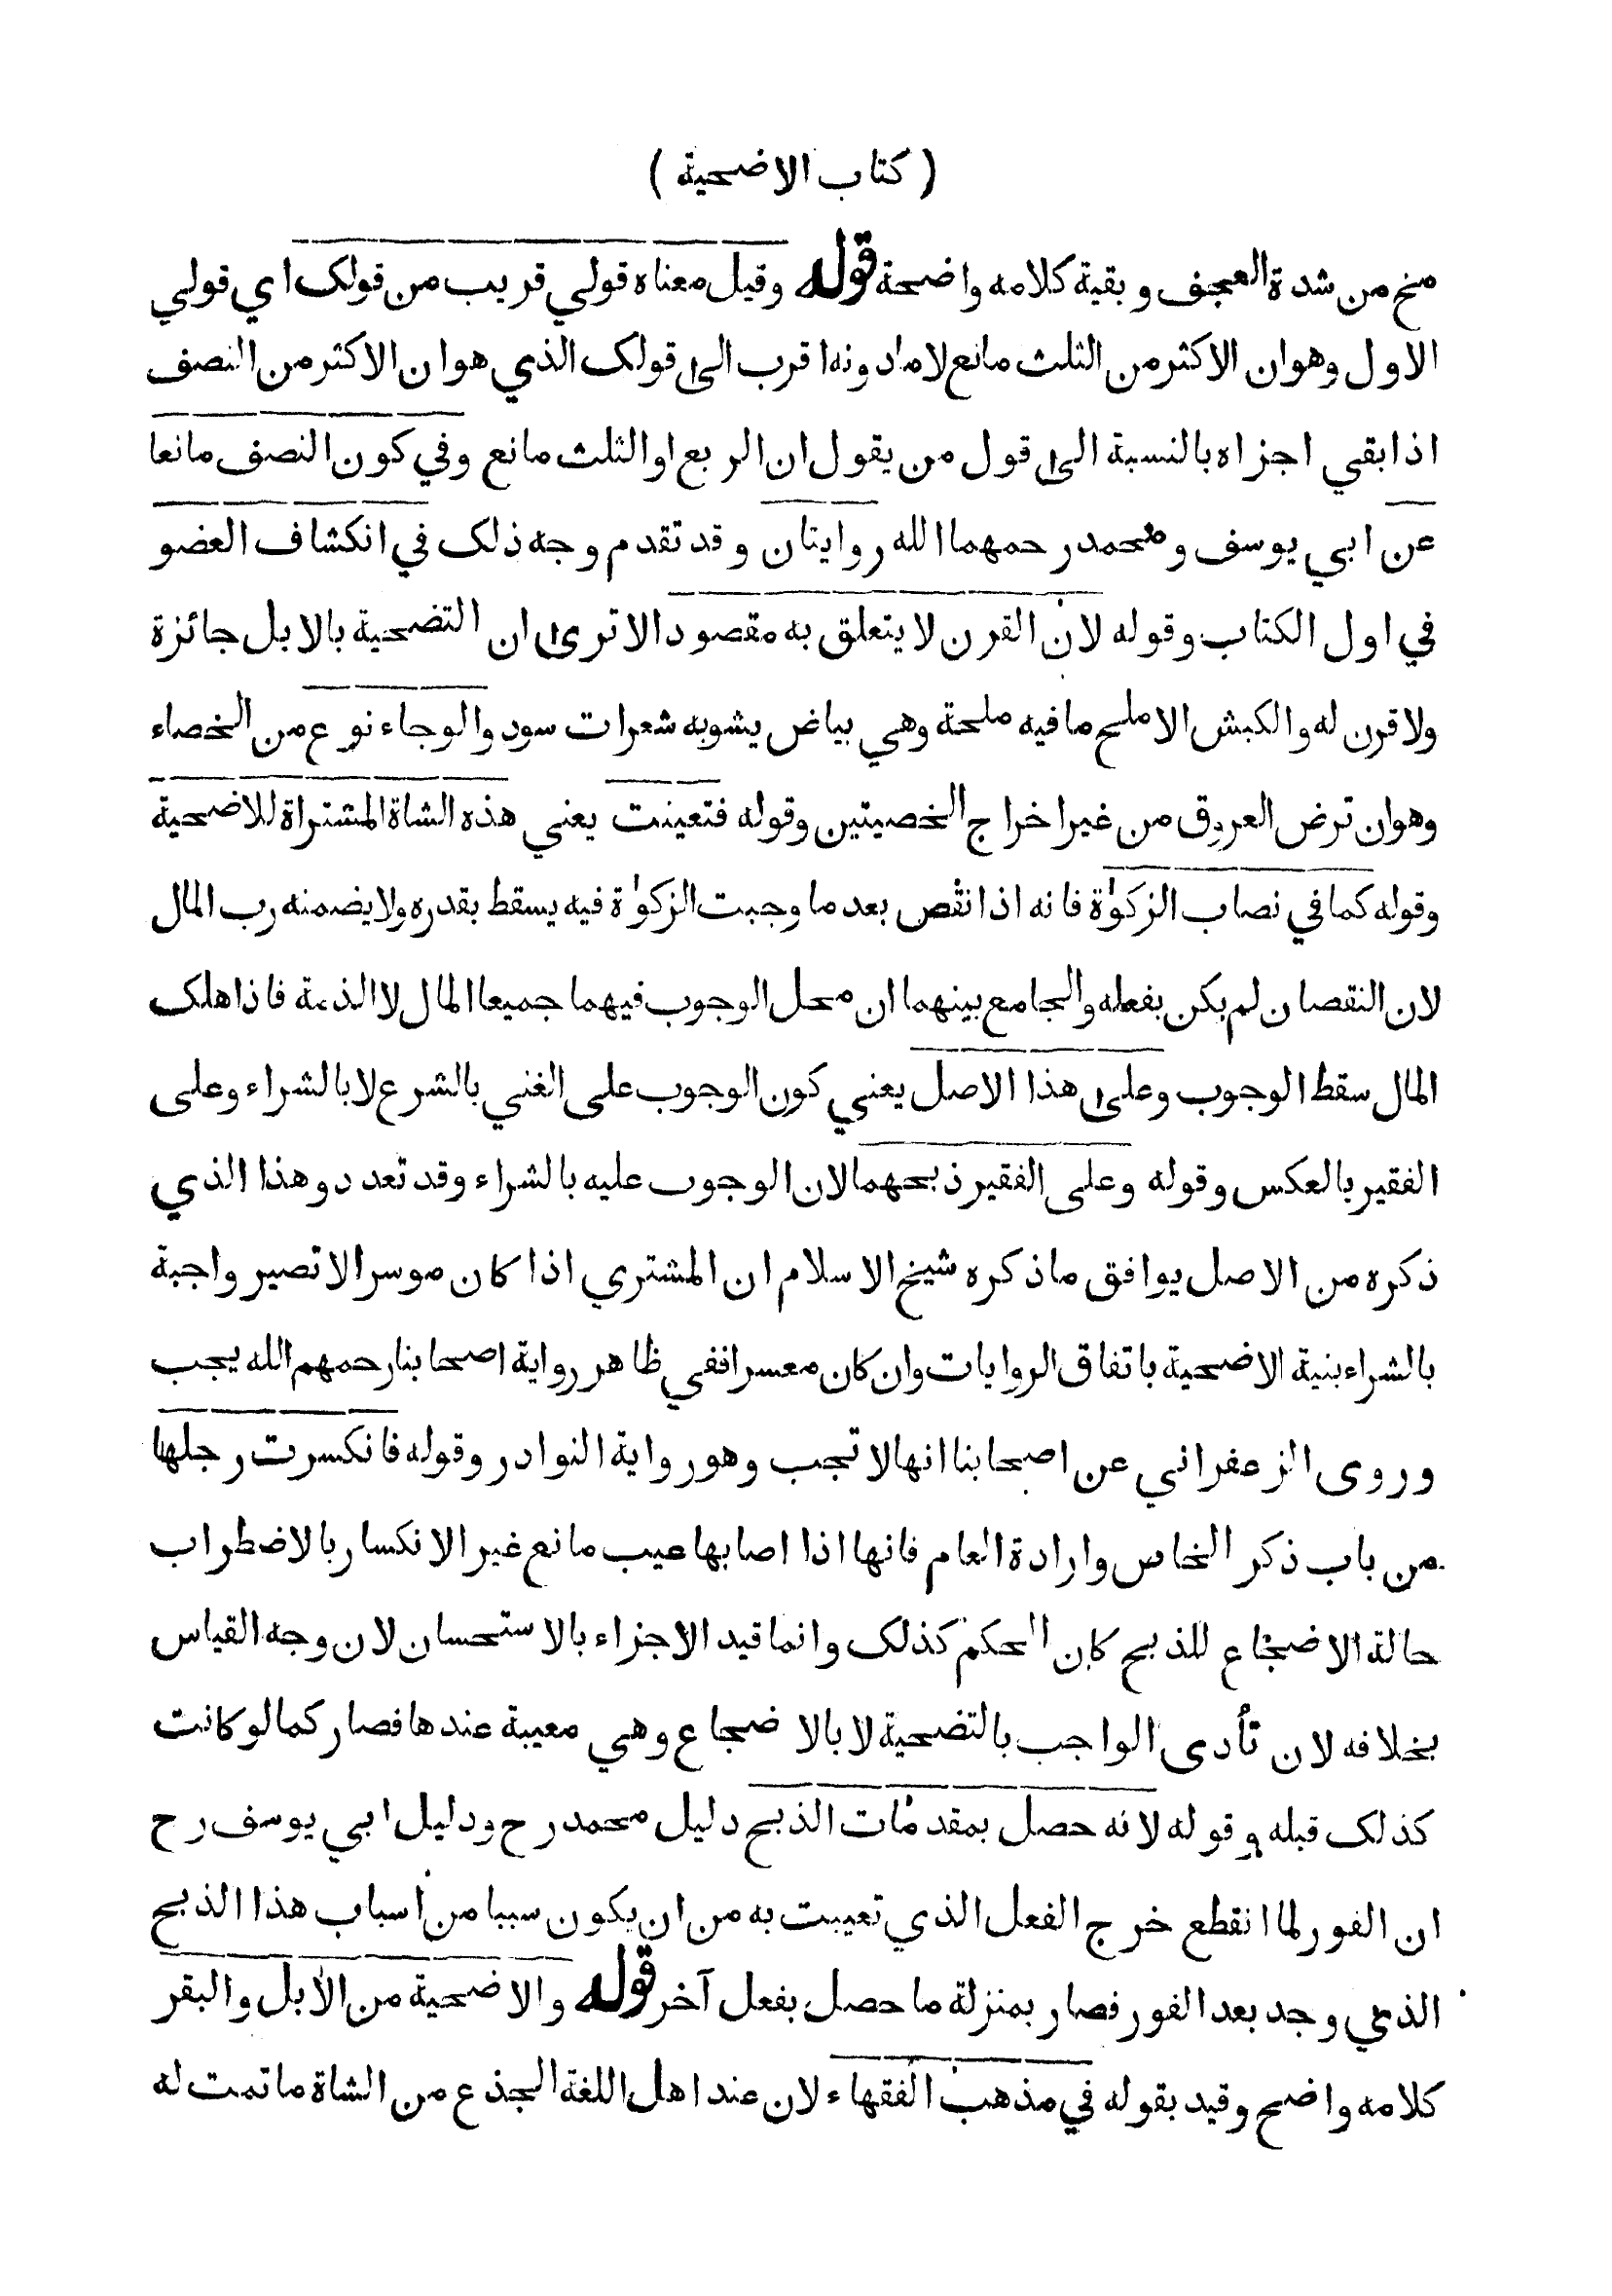 ( كتاب الاضحية )
مخ من شدة العجف وبقية كلامه واضحة قوله وقيل معناه قولي قريب من قولك اي قولي
الاول وهو ان الاكثر من الثلث مانع لا مادونه اقرب الى قولك الذي هو ان الاكثر من النصف
اذا بقي اجزاه بالنسبة الى قول من يقول ان الربع او الثلث مانع وفي كون النصف مانعا
عن ابي يوسف ومحمد رحمهما الله روايتان وقد تقدم وجه ذلك في انكشاف العضو
في اول الكتاب وقوله لان القرن لا يتعلق به مقصود الا ترى ان التضحية بالابل جائزة
ولا قرن له والكبش الاملح ما فيه ملحة وهي بياض يشوبه شعرات سود والوجاء نوع من الخصاء
وهو ان ترض العروق من غير اخراج الخصيتين وقوله فتعينت يعني هذه الشاة المشتراة للاضحية
وقوله كما في نصاب الزكوٰة فانه اذا نقص بعد ما وجبت الزكوٰة فيه يسقط بقدره ولا يضمنه رب المال
لان النقصان لم يكن بفعله والجامع بينهما ان محل الوجوب فيهما جميعا المال لا الذمة فاذا هلك
المال سقط الوجوب وعلى هذا الاصل يعني كون الوجوب على الغني بالشرع لا بالشراء وعلى
الفقير بالعكس وقوله وعلى الفقير ذبحهما لان الوجوب عليه بالشراء وقد تعدد وهذا الذي
ذكره من الاصل يوافق ما ذكره شيخ الاسلام ان المشتري اذا كان موسرا لا تصير واجبة
بالشراء بنية الاضحية باتفاق الروايات وان كان معسرا ففي ظاهر رواية اصحابنا رحمهم الله يجب
وروى الزعفراني عن اصحابنا انها لا تجب وهو رواية النوادر وقوله فانكسرت رجلها
من باب ذكر الخاص وارادة العام فانها اذا اصابها عيب مانع غير الانكسار بالاضطراب
حالة الاضجاع للذبح كان الحكم كذلك وانما قيد الاجزاء بالاستحسان لان وجه القياس
بخلافه لان تأدى الواجب بالتضحية لا بالاضجاع وهي معيبة عندها فصار كما لو كانت
كذلك قبله وقوله لانه حصل بمقدمات الذبح دليل محمد رح ودليل ابي يوسف رح
ان الفور لما انقطع خرج الفعل الذي تعيبت به من ان يكون سببا من اسباب هذا الذبح
الذي وجد بعد الفور فصار بمنزلة ما حصل بفعل آخر قوله والاضحية من الابل والبقر
كلامه واضح وقيد بقوله في مذهب الفقهاء لان عند اهل اللغة الجذع من الشاة ما تمت له